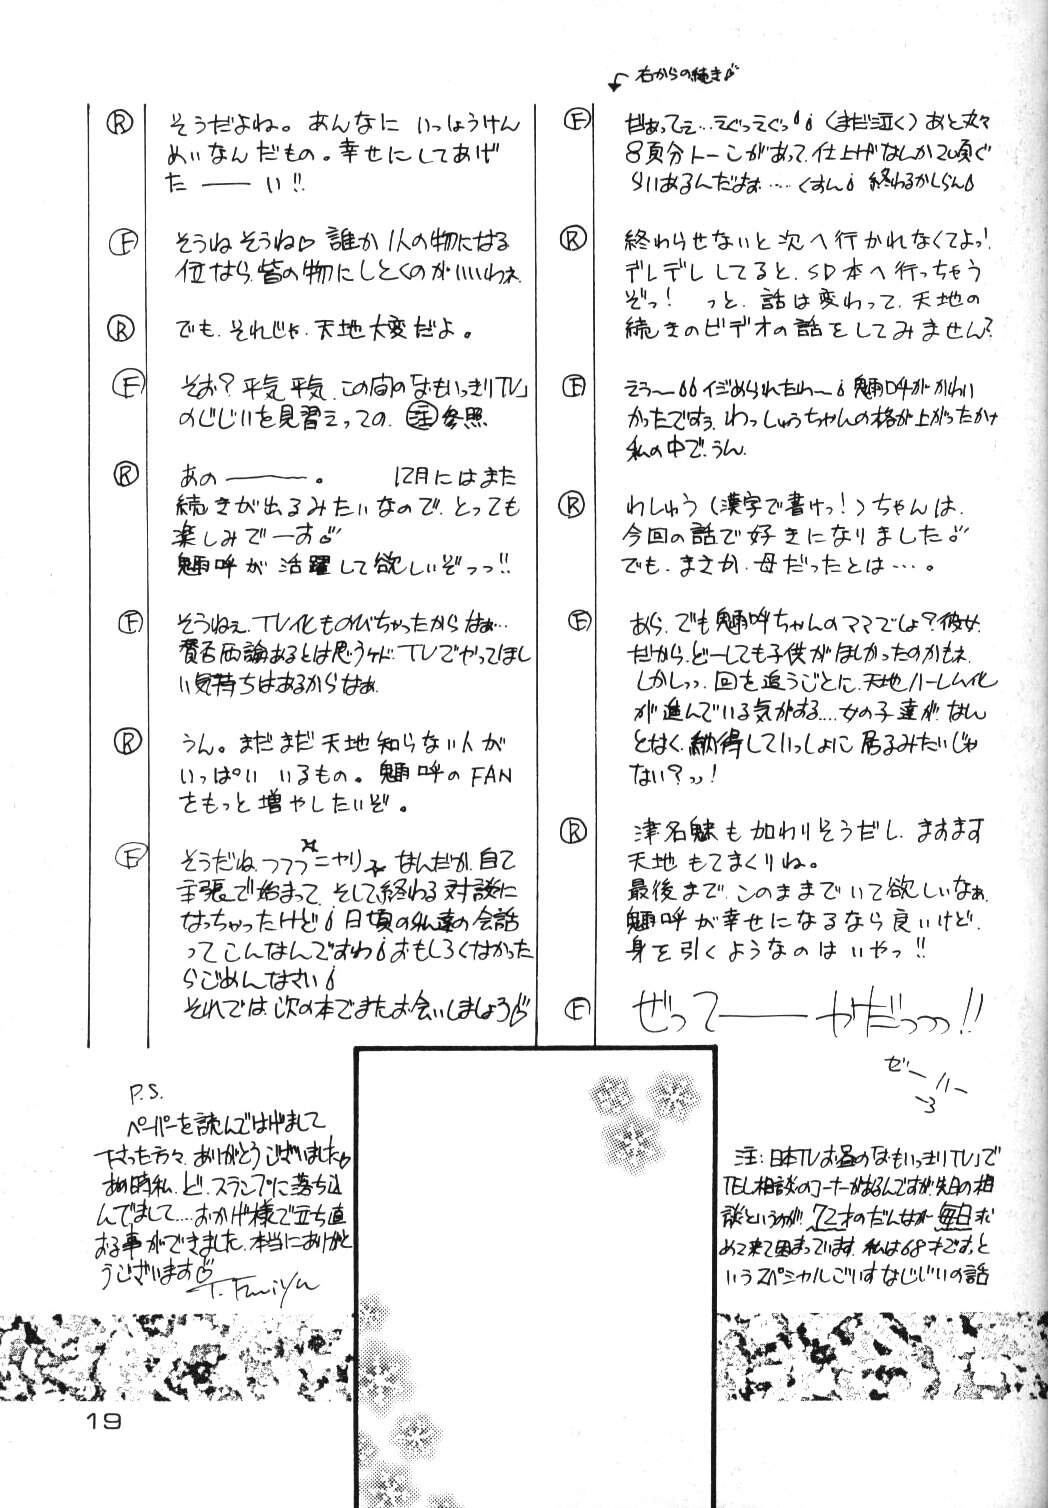 右からの続き♪
Ⓕ だぁってぇ…えぐっえぐっ!!（まだ泣く）あと丸々
8頁分トーンがあって、仕上げなんか20頁ぐ
らいあるんだよぉ……くすん! 終わるかしらん!
Ⓡ 終わらせないと次へ行かれなくてよっ!
デレデレしてると、SD本へ行っちゃう
ぞっ! っと、話は変わって、天地の
続きのビデオの話をしてみません?
Ⓕ えう〜!!イジめられたわ〜! 魎呼がかわい
かったですぅ、わっしゅうちゃんの格が上がったかな
私の中で、うん。
Ⓡ わしゅう（漢字で書けっ!）ちゃんは、
今回の話で好きになりました♪
でも、まさか、母だったとは…。
Ⓕ あら、でも魎呼ちゃんのママでしょ?彼女、
だから、どーしても子供がほしかったのかもネ。
しかしっ、回を追うごとに、天地ハーレム化
が進んでいる気がする....女の子達が、なん
となく、納得していっしょに居るみたいじゃ
ない?っ!
Ⓡ 津名魅も加わりそうだし、ますます
天地もてまくりね。
最後まで、このままでいて欲しいなぁ。
魎呼が幸せになるなら良いけど、
身を引くようなのはいやっ!!
Ⓕ ぜってーーやだっっっ!!
ゼーハー
Ⓡ そうだよね。あんなにいっしょうけん
めいなんだもの。幸せにしてあげ
たーーい!!
Ⓕ そうねそうね♡ 誰か1人の物になる
位なら、皆の物にしとくのがいいわネ。
Ⓡ でも、それじゃ、天地大変だよ。
Ⓕ そお?平気平気、この間の「おもいっきりTV」
のじじいを見習えっての、㊟参照
Ⓡ あのーーー。 12月にはまた
続きが出るみたいなので、とっても
楽しみでーす♪
魎呼が活躍して欲しいぞっっ!!
Ⓕ そうねぇ、TV化ものびちゃったからなぁ…
賛否両論あるとは思うケド、TVでやってほし
い気持ちはあるからなぁ。
Ⓡ うん。まだまだ天地知らない人が
いっぱいいるもの。魎呼のFAN
をもっと増やしたいぞ。
Ⓕ そうだね、フフフニヤリ なんだか、自己
主張で始まって、そして終わる対談に
なっちゃったけど!日頃の私達の会話
ってこんなんですわ!おもしろくなかった
らごめんなさい!
それでは、次の本でまたお会いしましょう♡
P.S.
ペーパーを読んではげまして
下さった方々、ありがとうございました♡
あの時私、ど、スランプに落ち込
んでまして....おかげ様で立ち直
おる事ができました、本当にありがと
うございます♡
T. Fumiya
注：日本TVお昼の「おもいっきりTV」で
TEL相談のコーナーがあるんですが、先日の相
談というのが、72才のだんなが、毎日求
めて来て困まっています。私は68才です。と
いうスペシャルごいすなじじいの話
19